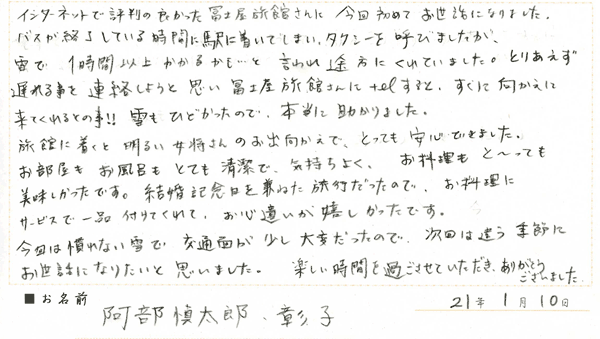 インターネットで評判の良かった冨士屋旅館さんに今回初めてお世話になりました。
バスが終了している時間に駅に着いてしまい、タクシーを呼びましたが、
雪で、1時間以上かかるかも…と言われ途方にくれていました。とりあえず
遅れる事を連絡しようと思い冨士屋旅館さんにtelすると、すぐに向かえに
来てくれるとの事!!雪もひどかったので、本当に助かりました。
旅館に着くと明るい女将さんのお出向かえで、とっても安心できました。
お部屋もお風呂もとても清潔で、気持ちよく、お料理もと〜っても
美味しかったです。結婚記念日を兼ねた旅行だったので、お料理に
サービスで一品付けてくれて、お心遣いが嬉しかったです。
今回は慣れない雪で交通面が少し大変だったので、次回は違う季節に
お世話になりたいと思いました。楽しい時間を過ごさせていただき、ありがとう
ございました
■お名前 阿部慎太郎、彰子
21年1月10日